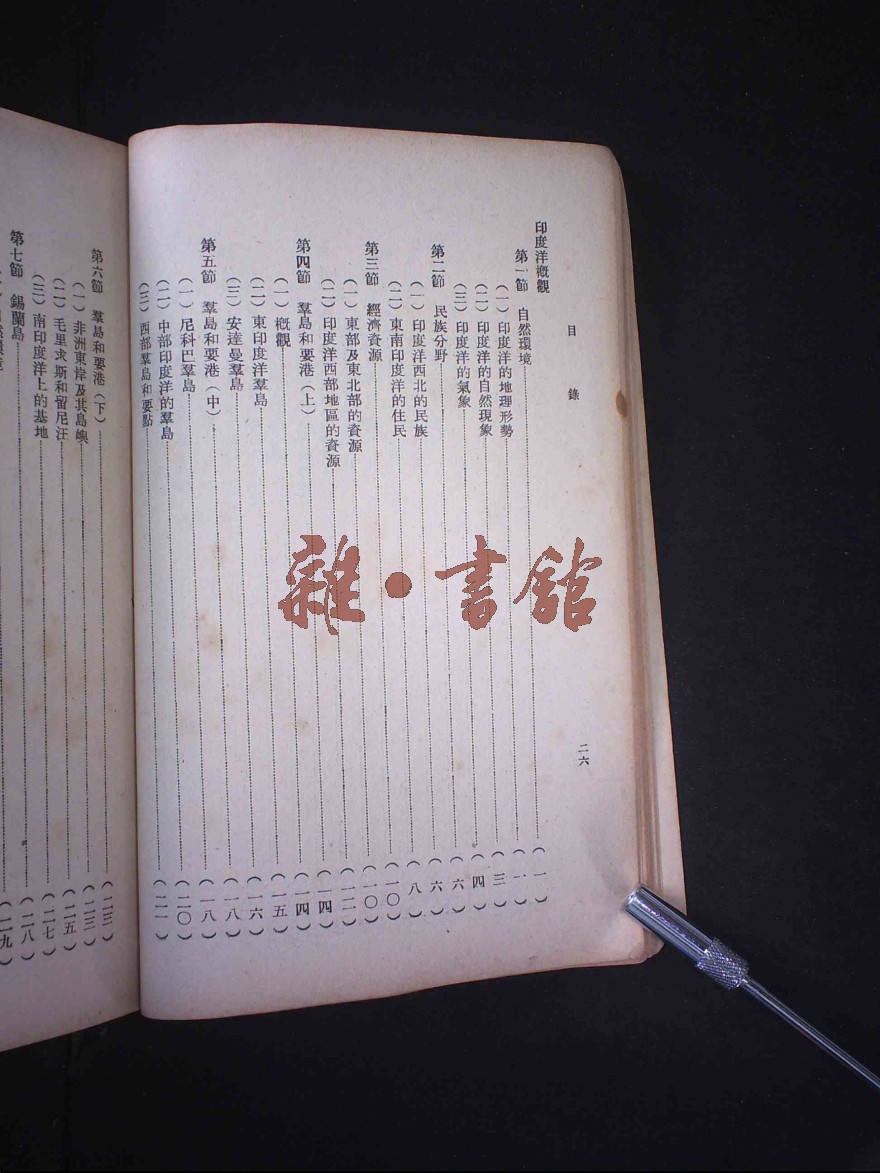 目錄
二六
印度洋概觀
第一節 自然環境……(一)
(一)印度洋的地理形勢……(三)
(二)印度洋的自然現象……(四)
(三)印度洋的氣象……(六)
第二節 民族分野……(六)
(一)印度洋西北的民族……(八)
(二)東南印度洋的住民……(一〇)
第三節 經濟資源……(一〇)
(一)東部及東北部的資源……(一二)
(二)印度洋西部地區的資源……(一四)
第四節 羣島和要港(上)……(一四)
(一)概觀……(一五)
(二)東印度洋羣島……(一六)
(三)安達曼羣島……(一八)
第五節 羣島和要港(中)……(一八)
(一)尼科巴羣島……(二〇)
(二)中部印度洋的羣島……(二一)
(三)西部羣島和要點
第六節 羣島和要港(下)……(二三)
(一)非洲東岸及其島嶼……(二三)
(二)毛里求斯和留尼汪……(二五)
(三)南印度洋上的基地……(二七)
第七節 錫蘭島……(二八)
(二九)
雜·書館